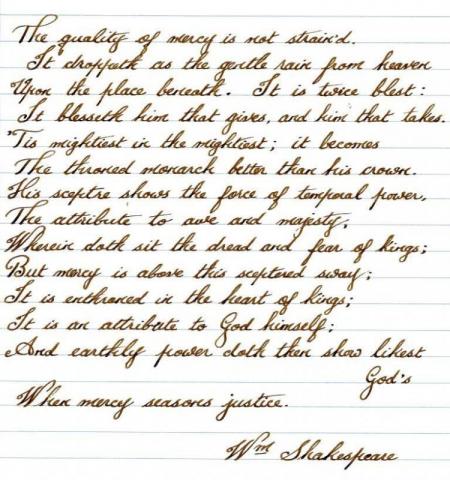 The quality of mercy is not strain'd.
It droppeth as the gentle rain from heaven
Upon the place beneath. It is twice blest:
It blesseth him that gives, and him that takes.
'Tis mightiest in the mightiest; it becomes
The throned monarch better than his crown.
His sceptre shows the force of temporal power,
The attribute to awe and majesty,
Wherein doth sit the dread and fear of kings;
But mercy is above this sceptred sway;
It is enthroned in the heart of kings;
It is an attribute to God himself;
And earthly power doth then show likest
God's
When mercy seasons justice.
Wm Shakespeare